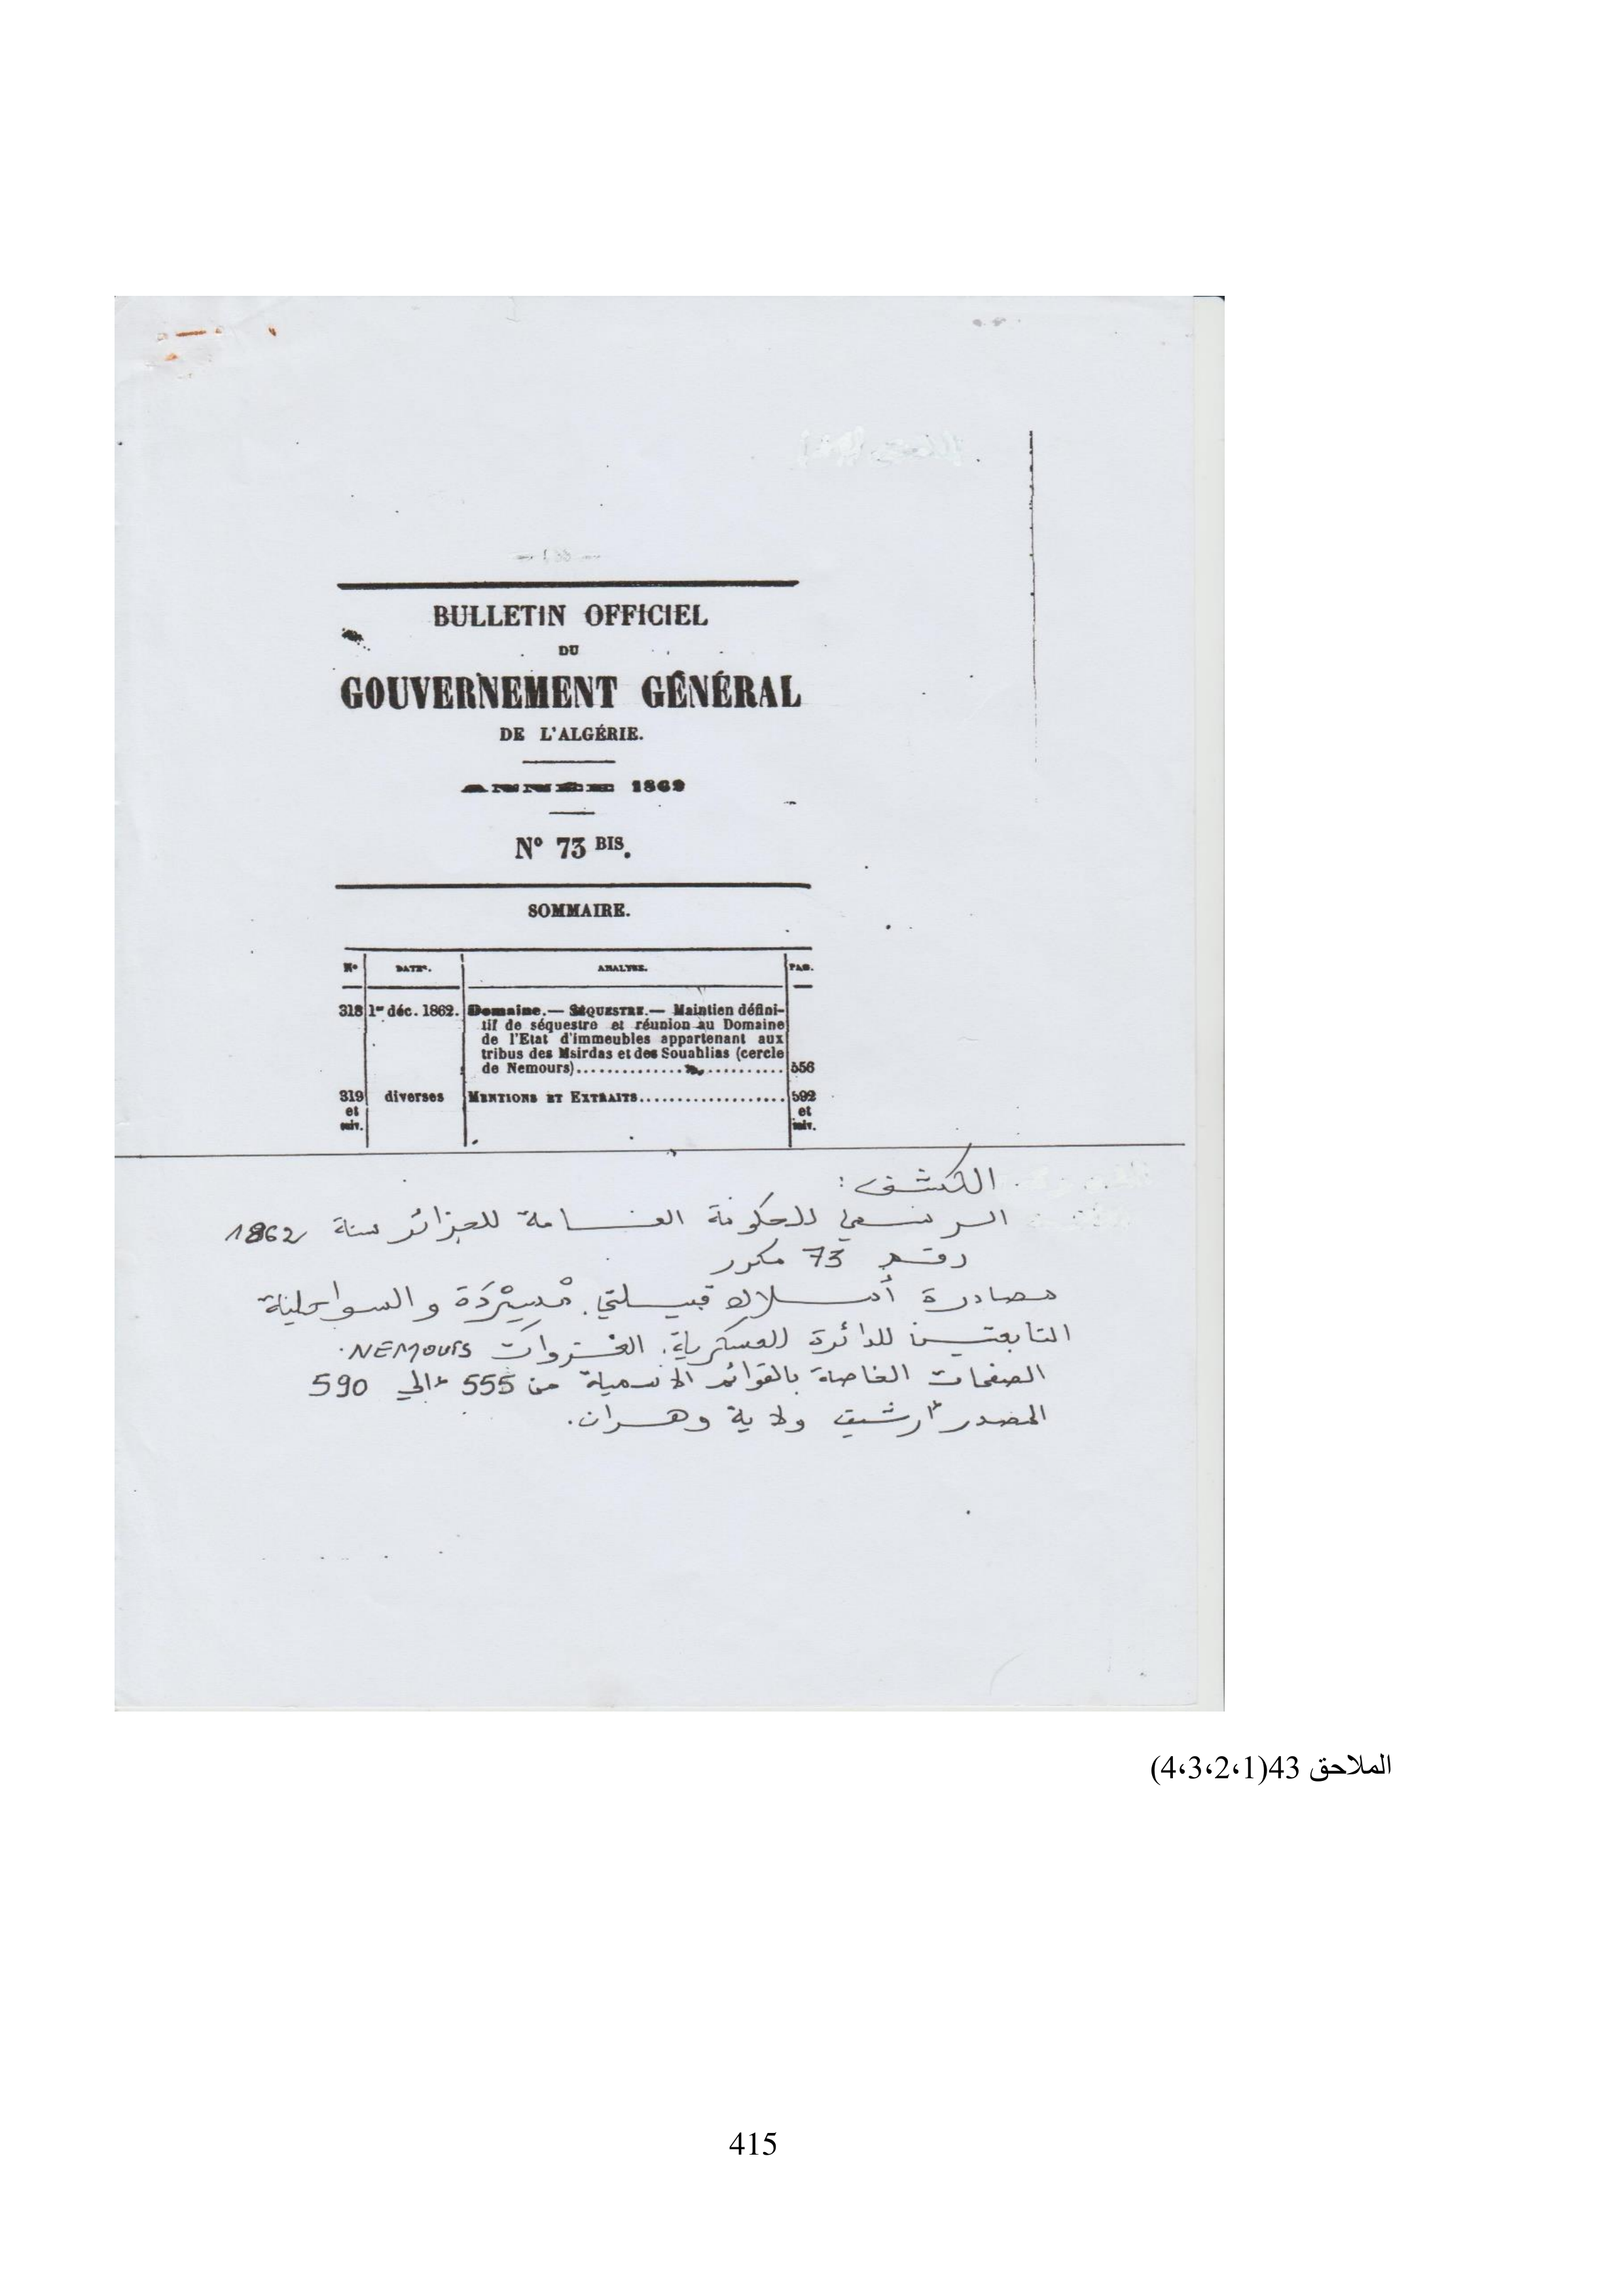 BULLETIN OFFICIEL
DU
GOUVERNEMENT GÉNÉRAL
DE L'ALGÉRIE.
ANNÉE 1862
Nº 73 BIS.
SOMMAIRE.
Nos DATES. ANALYSE. PAG.
318 1er déc. 1862. Domaine.— SÉQUESTRE.— Maintien défini-
tif de séquestre et réunion au Domaine
de l'Etat d'immeubles appartenant aux
tribus des Msirdas et des Souahlias (cercle
de Nemours)........................... 556
319 diverses MENTIONS ET EXTRAITS................... 592
et et
suiv. suiv.
الكشف :
الرسمي للحكومة العامة للجزائر سنة 1862
رقم 73 مكرر
مصادرة أملاك قبيلتي مْسِيْرْدَة و السواحلية
التابعتين للدائرة العسكرية. الغزوات NEMOURS.
الصفحات الخاصة بالقوائم الاسمية من 555 إلى 590
المصدر أرشيف ولاية وهران.
الملاحق 43(1،2،3،4)
415